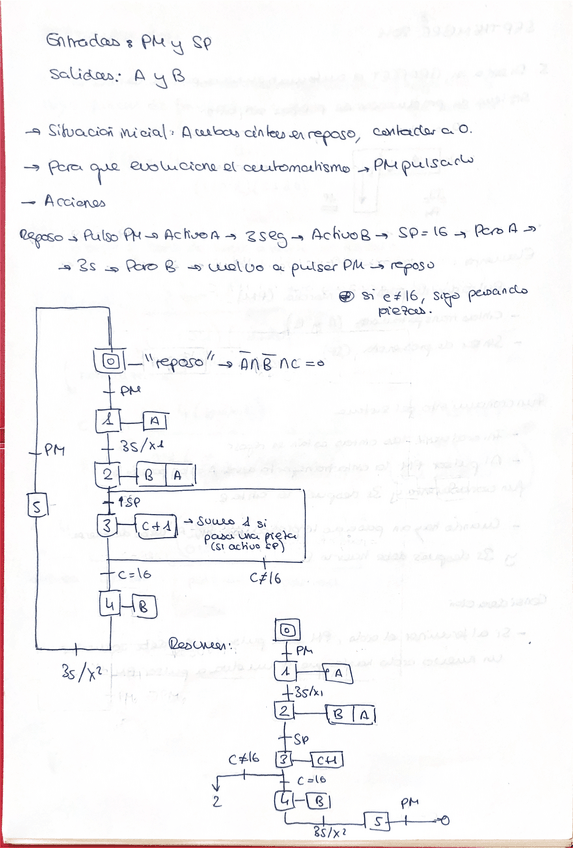 Entradas: PM y SP
Salidas: A y B
→ Situación inicial: Ambas cintas en reposo, contador a 0.
→ Para que evolucione el automatismo → PM pulsado
- Acciones
Reposo → Pulso PM → Activo A → 3seg → Activo B → SP=16 → Paro A →
→ 3s → Paro B → vuelvo a pulsar PM → reposo
⊕ si c≠16, sigo pasando
piezas.
0 "reposo" → A̅∩B̅∩C=0
PM
1 A
PM 3S/X1
2 B A
S ↑SP
3 C+1 → Sumo 1 si
pasa una pieza
(si activo SP)
C=16 C≠16
4 B
3S/X2
Resumen:
0
PM
1 A
3S/X1
2 B A
SP
C≠16 3 C+1
C=16
2 4 B
3S/X2 S PM 0